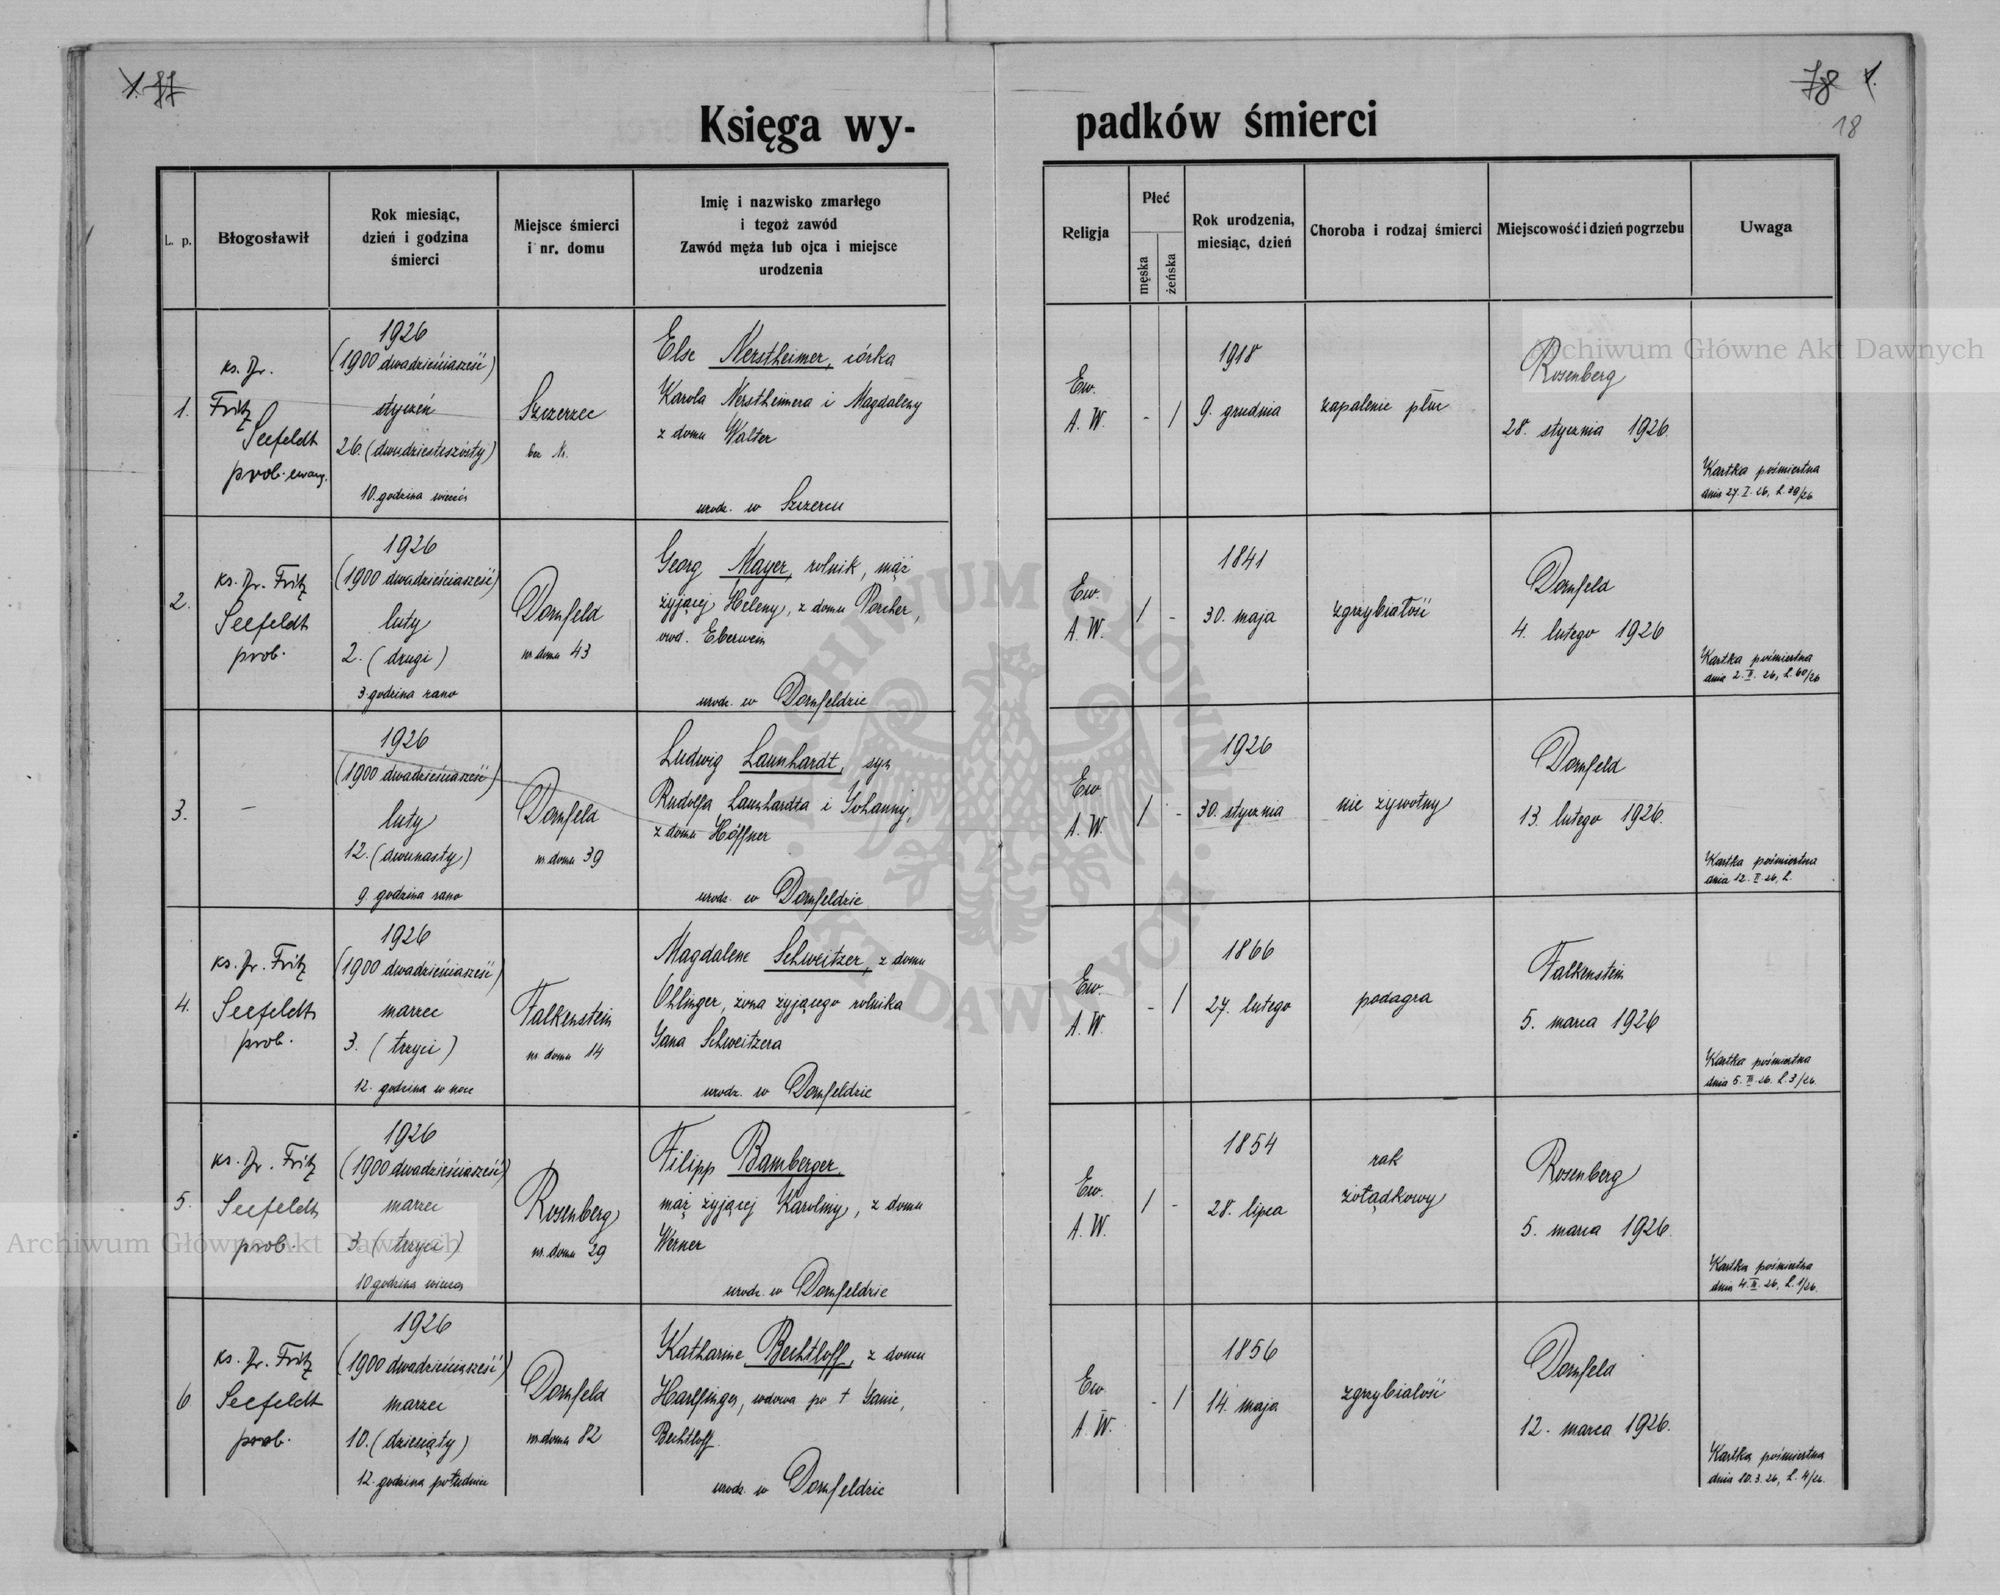 77
78
18
Księga wy-
padków śmierci
L. p.
Błogosławił
Rok miesiąc,
dzień i godzina
śmierci
Miejsce śmierci
i nr. domu
Imię i nazwisko zmarłego
i tegoż zawód
Zawód męża lub ojca i miejsce
urodzenia
Religja
Płeć
męska
żeńska
Rok urodzenia,
miesiąc, dzień
Choroba i rodzaj śmierci
Miejscowość i dzień pogrzebu
Uwaga
1.
ks. Dr.
Fritz
Seefeldt
prob. ewang.
1926
(1900 dwadzieściasześć)
styczeń
26. (dwudziestszósty)
10. godzina wieczór
Szczerzec
bez Nr.
Else Nerstheimer, córka
Karola Nerstheimera i Magdaleny
z domu Walter
urodz. w Szczercu
Ew.
A. W.
- /
1918
9. grudnia
zapalenie płuc
Rosenberg
28. stycznia 1926.
Kartka pośmiertna
dnia 27. I. 26, L. 39/26
2.
ks. Dr. Fritz
Seefeldt
prob.
1926
(1900 dwadzieściasześć)
luty
2. (drugi)
3. godzina rano
Dornfeld
nr. domu 43
Georg Mayer, rolnik, mąż
żyjącej Heleny, z domu Porcher,
owd. Eberwein
urodz. w Dornfeldzie
Ew.
A. W.
/ -
1841
30. maja
zgrzybiałość
Dornfeld
4. lutego 1926
Kartka pośmiertna
dnia 2. II. 26, L. 60/26
3.
-
1926
(1900 dwadzieściasześć)
luty
12. (dwunasty)
9. godzina rano
Dornfeld
nr. domu 39
Ludwig Launhardt, syn
Rudolfa Launhardta i Johanny,
z domu Höffner
urodz. w Dornfeldzie
Ew
A. W.
/ -
1926
30. stycznia
nie żywotny
Dornfeld
13. lutego 1926.
Kartka pośmiertna
dnia 12. II. 26, L.
4.
ks. Dr. Fritz
Seefeldt
prob.
1926
(1900 dwadzieściasześć)
marzec
3. (trzeci)
12. godzina w nocy
Falkenstein
nr. domu 14
Magdalene Schweitzer, z domu
Ohlinger, żona żyjącego rolnika
Jana Schweitzera
urodz. w Dornfeldzie
Ew.
A. W.
- /
1866
27. lutego
podagra
Falkenstein
5. marca 1926
Kartka pośmiertna
dnia 5. III. 26. L. 3/26.
5.
ks. Dr. Fritz
Seefeldt
prob.
1926
(1900 dwadzieściasześć)
marzec
3. (trzeci)
10 godzina wieczór
Rosenberg
nr. domu 29
Filipp Bamberger,
mąż żyjącej Karoliny, z domu
Werner
urodz. w Dornfeldzie
Ew.
A. W.
/ -
1854
28. lipca
rak
żołądkowy
Rosenberg
5. marca 1926.
Kartka pośmiertna
dnia 4. III. 26, L. 1/26.
6
ks. Dr. Fritz
Seefeldt
prob.
1926
(1900 dwadzieściasześć)
marzec
10. (dziesiąty)
12. godzina południe
Dornfeld
nr. domu 82
Katharine Bechtloff, z domu
Harlfinger, wdowa po + Janie,
Bechtloff.
urodz. w Dornfeldzie
Ew.
A. W.
- /
1856
14. maja
zgrzybiałość
Dornfeld
12. marca 1926.
Kartka pośmiertna
dnia 10. 3. 26, L. 4/26.
Archiwum Główne Akt Dawnych
Archiwum Główne Akt Dawnych
ARCHIWUM GŁÓWNE
AKT DAWNYCH